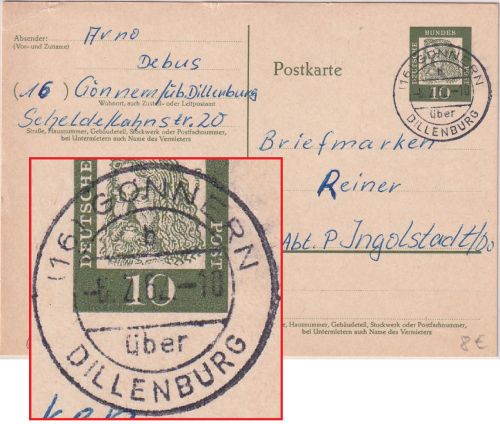 Absender:
(Vor- und Zuname)
Arno
Debus
(16) Gönnern üb. Dillenburg
Wohnort, auch Zustell- oder Leitpostamt
Scheldelahnstr. 20
Straße, Hausnummer, Gebäudeteil, Stockwerk oder Postfachnummer,
bei Untermietern auch Name des Vermieters
Postkarte
DEUTSCHE
BUNDES
POST
10
(16) GÖNNERN
b
-10
über
DILLENBURG
Briefmarken
Reiner
Abt. P. Ingolstadt/Do
Straße, Hausnummer, Gebäudeteil, Stockwerk oder Postfachnummer,
bei Untermietern auch Name des Vermieters
8€
DEUTSCHE
POST
10
(16) GÖNNERN
b
-6.2.62.-10
über
DILLENBURG